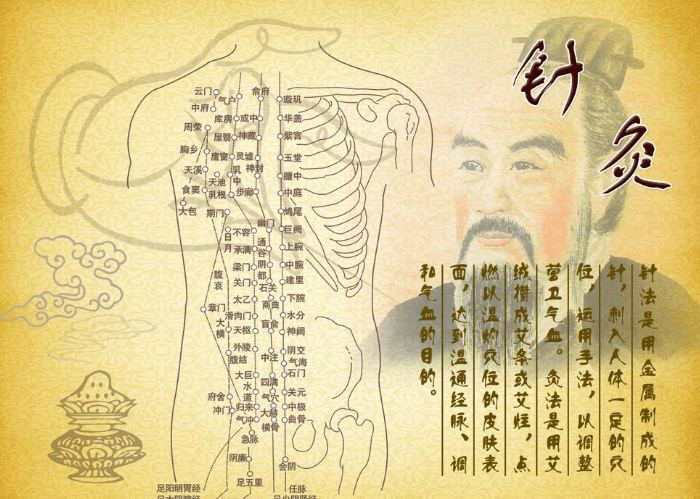 针灸
针法是用金属制成的
针，刺入人体一定的穴
位，运用手法，以调整
营卫气血。灸法是用艾
绒攒成艾条或艾炷，点
燃以温灼穴位的皮肤表
面，达到温通经脉、调
和气血的目的。
云门
俞府
气户
璇玑
中府
库房
或中
华盖
周荣
屋翳
神藏
紫宫
胸乡
膺窗
灵墟
玉堂
天溪
乳中
神封
膻中
天池
食窦
乳根
步廊
中庭
大包
期门
鸠尾
幽门
日月
不容
通谷
巨阙
承满
上脘
梁门
阴都
中脘
腹哀
关门
石关
建里
太乙
商曲
下脘
章门
滑肉门
水分
大横
天枢
肓俞
神阙
外陵
阴交
腹结
中注
气海
大巨
四满
石门
水道
府舍
气穴
关元
冲门
归来
大赫
中极
气冲
横骨
曲骨
急脉
阴廉
会阴
足五里
足阳明胃经
任脉
足少阴肾经